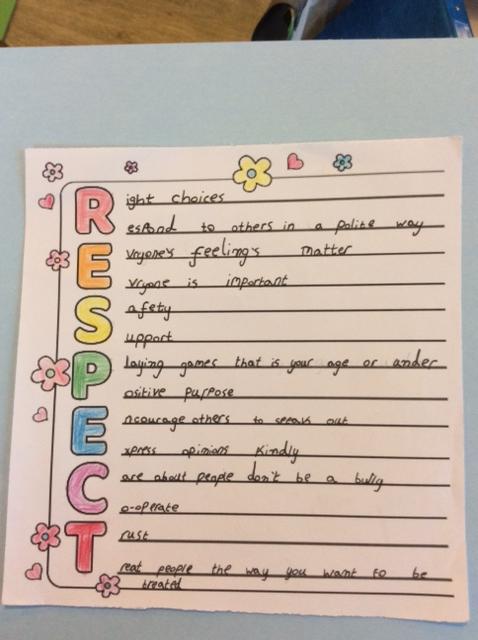 Right choices
espond to others in a polite way
Evryone's feeling's matter
vryone is important
Safety
upport
Playing games that is your age or under
ositive purpose
Encourage others to speak out
xpress opinions kindly
Care about people don't be a bully
o-operate
Trust
reat people the way you want to be
treated